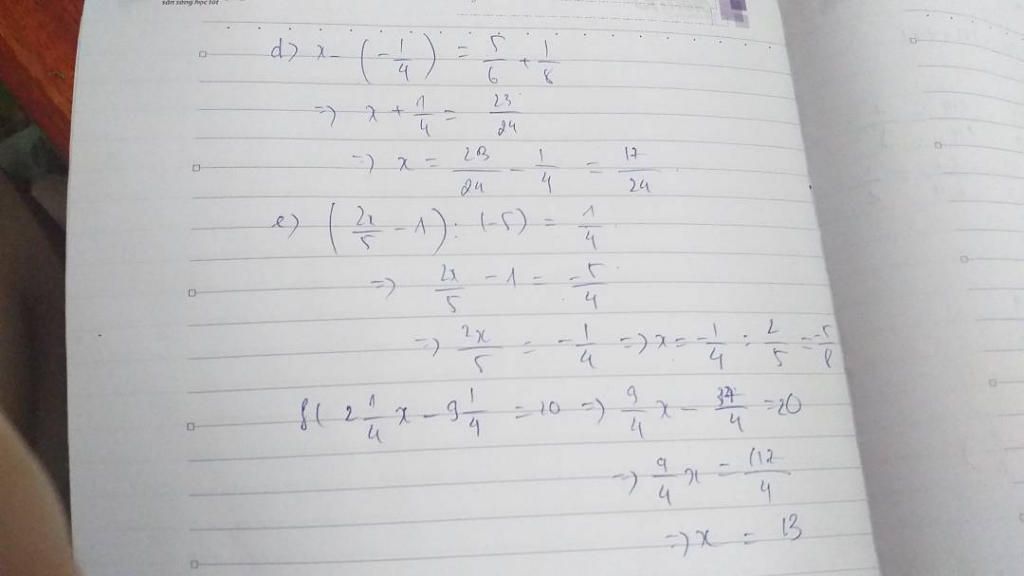 sẵn sàng học tốt
d) x - (-1/4) = 5/6 + 1/8
=> x + 1/4 = 23/24
=> x = 23/24 - 1/4 = 17/24
e) (2x/5 - 1) : (-5) = 1/4
=> 2x/5 - 1 = -5/4
=> 2x/5 = -1/4 => x = -1/4 : 2/5 = -5/8
f( 2 1/4 x - 9 1/4 = 20 => 9/4 x - 37/4 = 20
=> 9/4 x = 117/4
=> x = 13